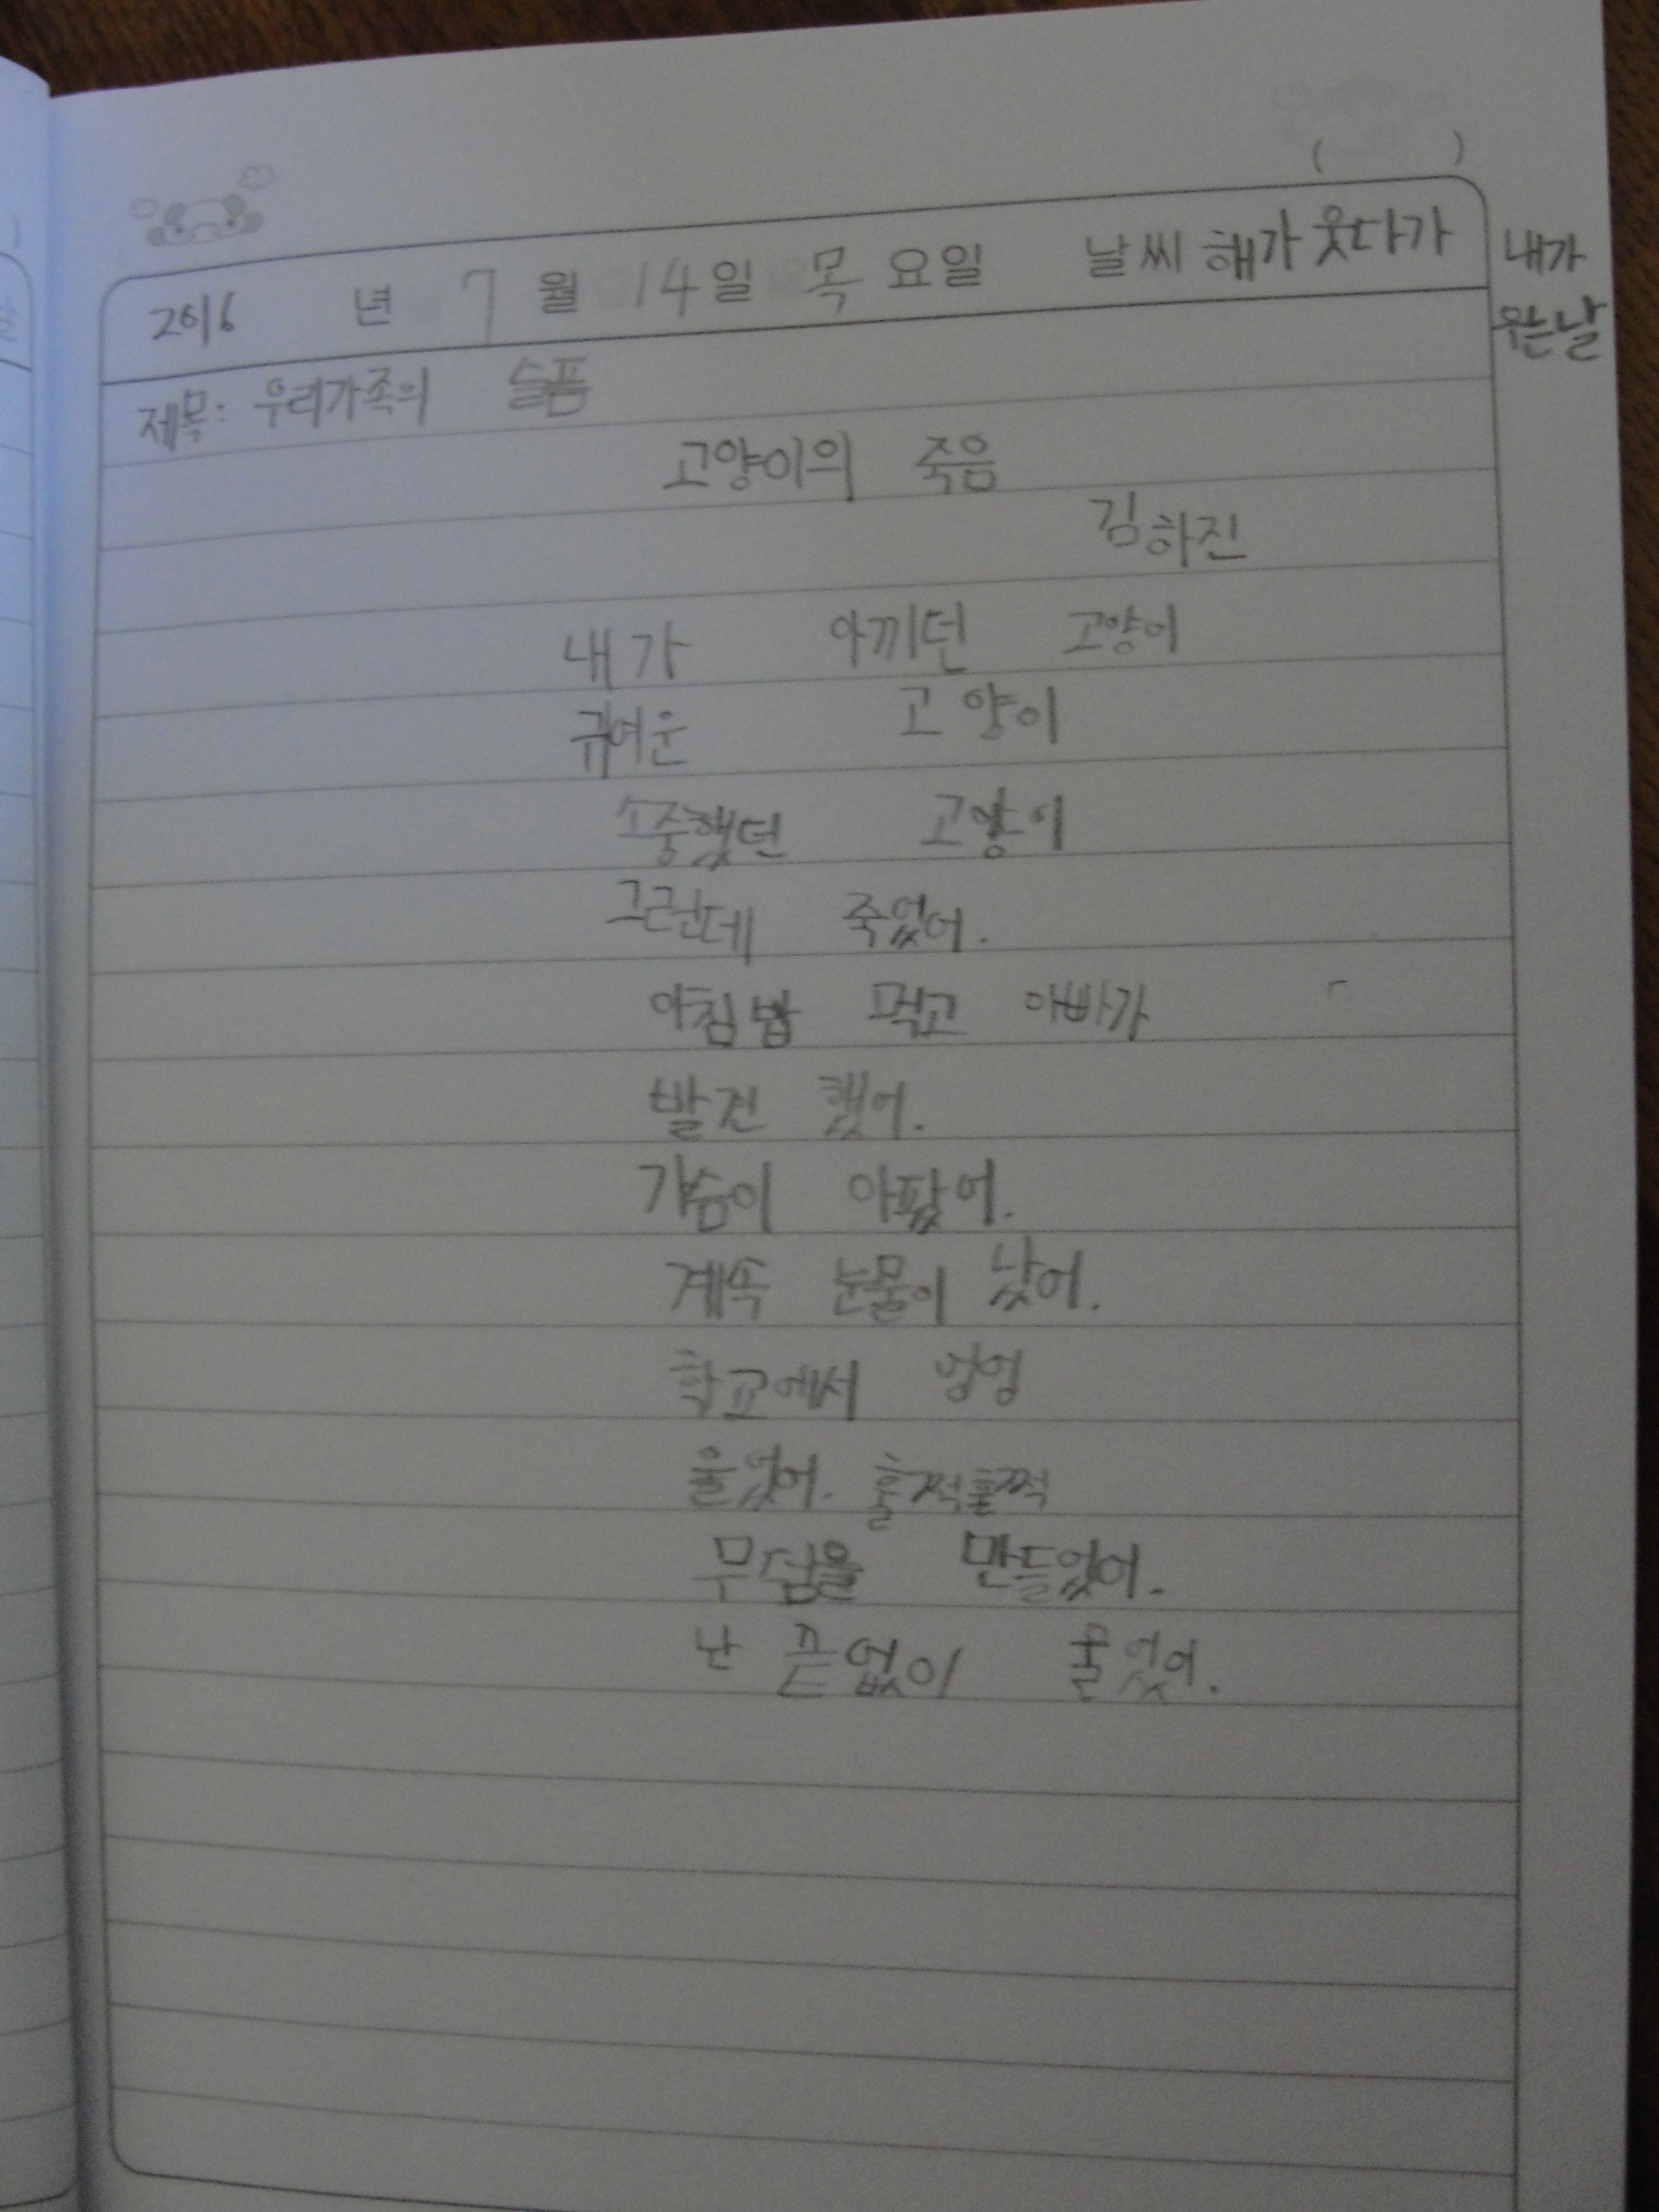 ( )
2016 년 7 월 14 일 목 요일 날씨 해가 웃다가 내가
우는날
제목: 우리가족의 슬픔
고양이의 죽음
김하진
내가 아끼던 고양이
귀여운 고양이
소중했던 고양이
그런데 죽었어.
아침밥 먹고 아빠가
발견 했어.
가슴이 아팠어.
계속 눈물이 났어.
학교에서 엉엉
울었어. 훌쩍훌쩍
무덤을 만들었어.
난 끝없이 울었어.